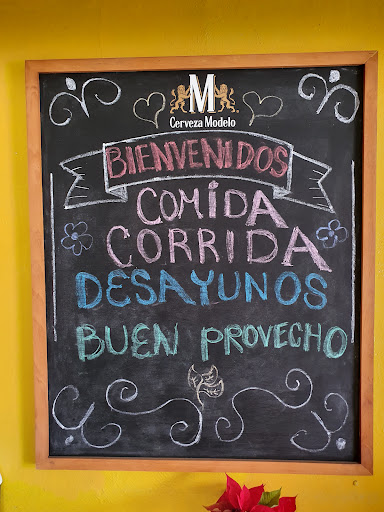 M
Cerveza Modelo
BIENVENIDOS
COMIDA
CORRIDA
DESAYUNOS
BUEN PROVECHO